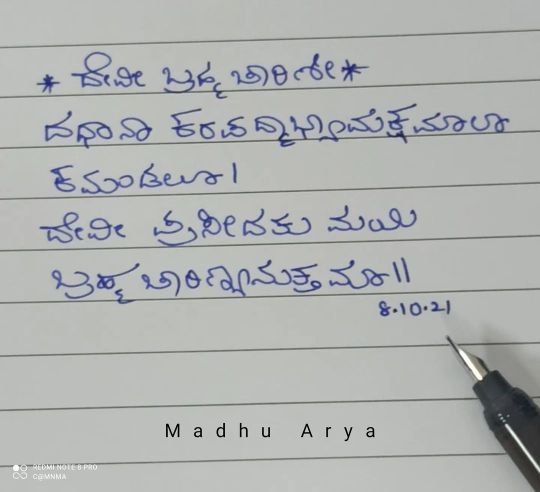 * ದೇವೀ ಬ್ರಹ್ಮಚಾರಿಣೀ *
ದಧಾನಾ ಕರಪದ್ಮಾಭ್ಯಾಮಕ್ಷಮಾಲಾ
ಕಮಂಡಲೂ।
ದೇವೀ ಪ್ರಸೀದತು ಮಯಿ
ಬ್ರಹ್ಮಚಾರಿಣ್ಯಾನುತ್ತಮಾ॥
8.10.21
Madhu Arya
REDMI NOTE 8 PRO
C@MNMA